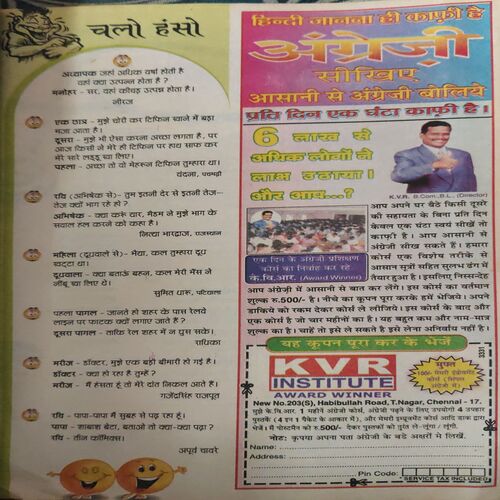 चलो हंसो
अध्यापक जहां अधिक वर्षा होती है
वहां क्या उत्पन्न होता है ?
मनोहर - सर, वहां कीचड़ उत्पन्न होता है।
नीरज
एक छात्र - मुझे चोरी कर टिफिन खाने में बड़ा
मजा आता है।
दूसरा - मुझे भी ऐसा करना अच्छा लगता है, पर
आज किसी ने मेरे ही टिफिन पर हाथ साफ कर
मेरे सारे लड्डू खा लिए।
पहला - अच्छा तो वो मेहरून टिफिन तुम्हारा था।
वंदना, पचमढ़ी
रवि (अभिषेक से)- तुम इतनी देर से इतनी तेज-
तेज क्यों भाग रहे हो ?
अभिषेक - क्या करू यार, मैडम ने मुझे भाग के
सवाल हल करने को कहा है।
नित्या भारद्वाज, राजस्थान
महिला (दूधवाले से) - भैया, कल तुम्हारा दूध
खट्टा था।
दूधवाला - क्या बताऊं बहन, कल मेरी भैंस ने
नींबू खा लिए थे।
सुमित धारू, पटियाला
पहला पागल - जानते हो शहर के पास रेलवे
लाइन पर फाटक क्यों लगाए जाते हैं ?
दूसरा पागल - ताकि रेल शहर में न घुस सके।
राधिका
मरीज - डॉक्टर, मुझे एक बड़ी बीमारी हो गई है।
डॉक्टर - क्या हो रहा है तुम्हें ?
मरीज - मैं हंसता हूं तो मेरे दांत निकल आते हैं।
गजेंद्रसिंह राजपूत
रवि - पापा-पापा मैं सुबह से पढ़ रहा हूं।
पापा - शाबाश बेटा, बताओ तो क्या-क्या पढ़ा ?
रवि - तीन कॉमिक्स।
अपूर्व चावरे
हिन्दी जानना ही काफ़ी है
अंग्रेज़ी
सीखिए
आसानी से अंग्रेजी बोलिये
प्रति दिन एक घंटा काफ़ी है।
6 लाख से
अधिक लोगों ने
लाभ उठाया।
और आप...?
K.V.R. B.Com.,B.L., (Director)
एक दिन के अंग्रेजी प्रशिक्षण
कोर्स का निर्वाह कर रहे
के.वि.आर. (Award Winner)
आप अपने घर बैठे किसी दूसरे
की सहायता के बिना प्रति दिन
केवल एक घंटा खर्च सीखें तो
काफ़ी है। आप आसानी से
अंग्रेजी सीख सकते हैं। हमारा
कोर्स एक विशेष तरीके से
आसान सूत्रों सहित सुलभ ढंग से
तैयार हुआ है। इसलिए निस्सन्देह
आप अंग्रेजी में आसानी से बात कर लेंगे। इस कोर्स का वर्तमान
शुल्क रु.500/- है। नीचे का कूपन पूरा करके हमें भेजिये। अपने
डाकिये को रकम देकर कोर्स ले लीजिये। इस कोर्स के बाद और
एक कोर्स है जो चार महीनों का है। यह बहुत काम और नाम-मात्र
शुल्क का है। चाहें तो इसे ले सकते है इसे लेना अनिवार्य नहीं है।
यह कूपन पूरा कर के भेजें
KVR
INSTITUTE
AWARD WINNER
3331
मुफ़्त
New No.203(S), Habibullah Road, T.Nagar, Chennai - 17.
मुझे के.वि.आर. 1 महीने अंग्रेजी कोर्स, अंग्रेजी पढ़ने के लिए उपयोगी 4 उपकार
पुस्तकें ( 4 इन 1 पैकेट के आकार में ), और मेमरी इम्प्रूवमेंट कोर्स आदि डाक द्वारा
भेजें। मैं पोस्टमैन को रु.500/- देकर पुस्तकों को तुरंत ले-लूंगा /लूंगी.
नोट: कृपया अपना पता अंग्रेजी के बड़े अक्षरों मे लिखें.
Name:
Address:
Pin Code:
SERVICE TAX INCLUDED